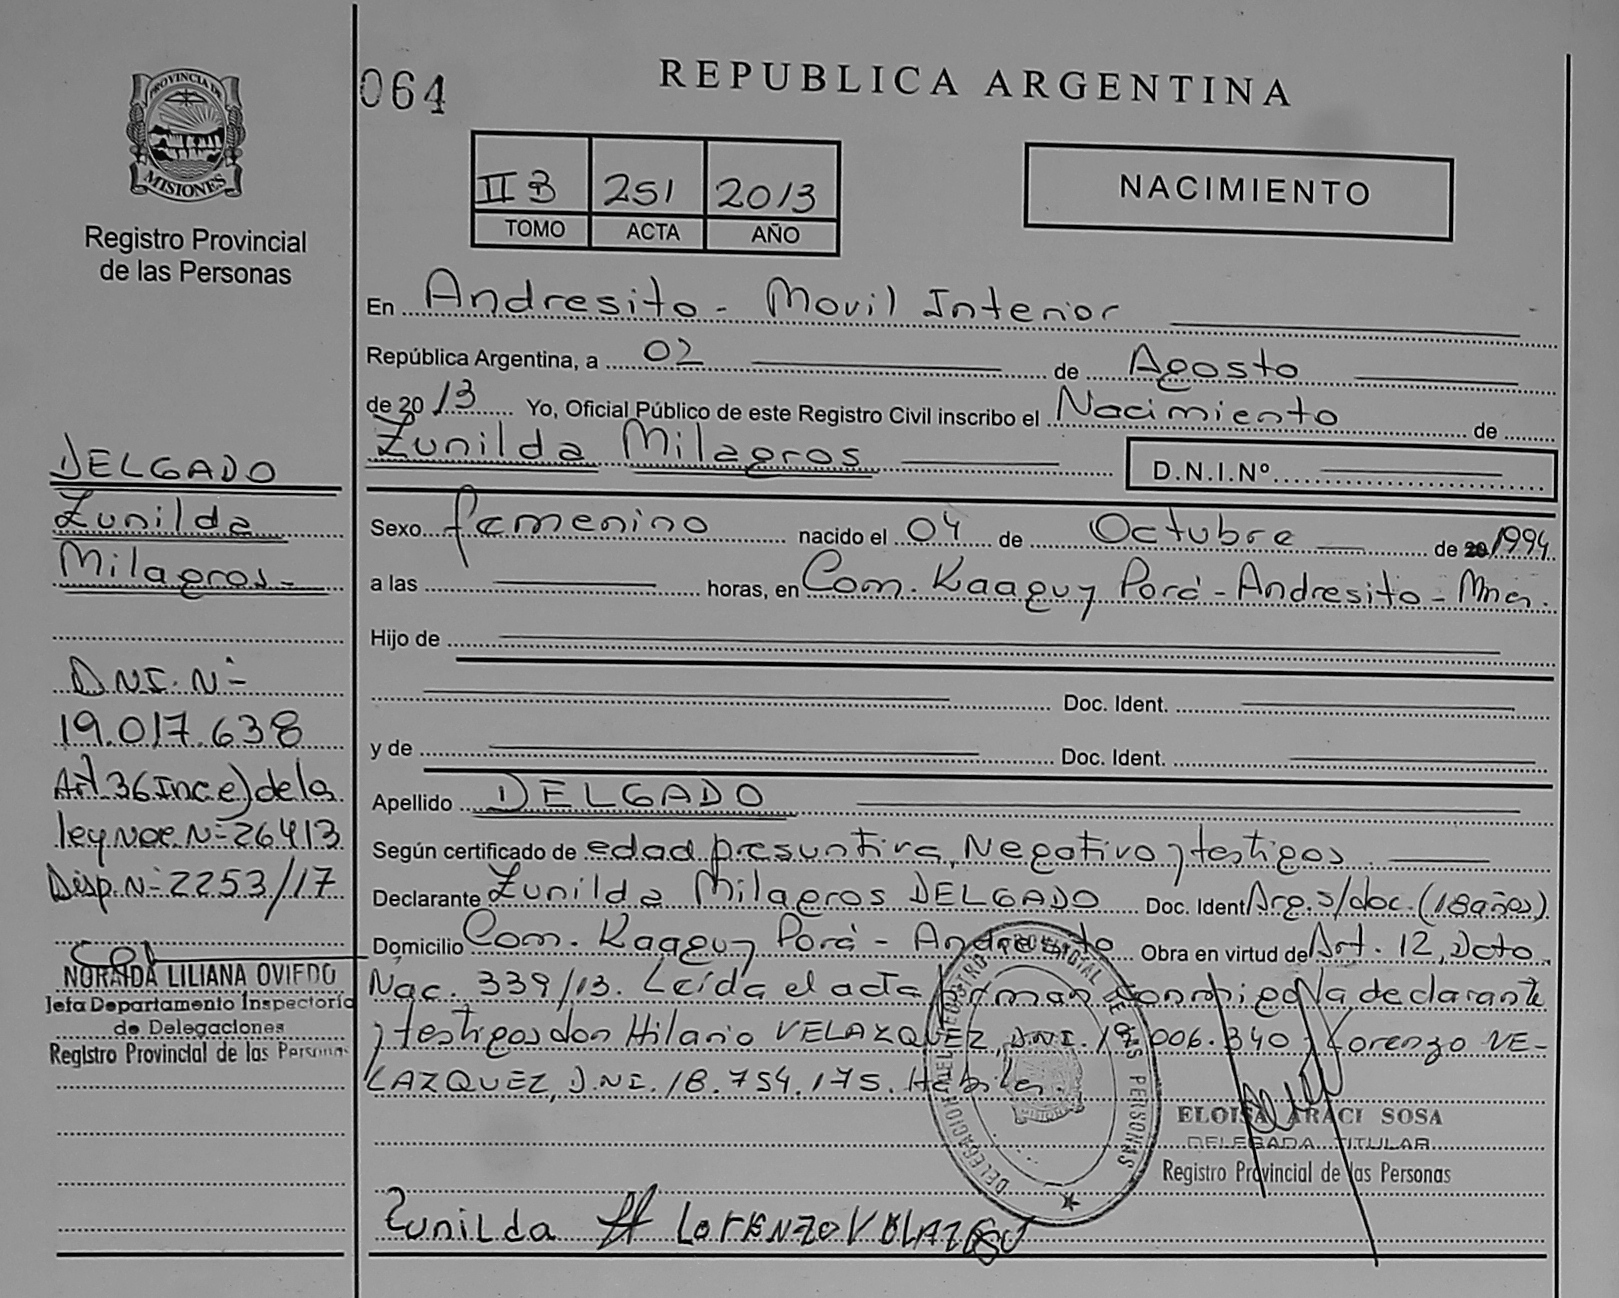 PROVINCIA DE
MISIONES
Registro Provincial
de las Personas
DELGADO
Zunilda
Milagros.-
D.N.I. Nº
19.017.638
Art. 36 Inc e) de la
ley Nac. Nº 26413
Disp. Nº 2253/17
NORAIDA LILIANA OVIEDO
Jefa Departamento Inspectoría
de Delegaciones
Registro Provincial de las Personas
064
REPUBLICA ARGENTINA
II B 251 2013
TOMO ACTA AÑO
NACIMIENTO
En Andresito - Movil Interior
República Argentina, a 02 de Agosto
de 2013 Yo, Oficial Público de este Registro Civil inscribo el Nacimiento de
Zunilda Milagros D.N.I.Nº
Sexo femenino nacido el 04 de Octubre de 20 1994
a las horas, en Com. Kaaguy Porá - Andresito - Mnes.
Hijo de
Doc. Ident.
y de Doc. Ident.
Apellido DELGADO
Según certificado de edad presuntiva, Negativo y testigos
Declarante Zunilda Milagros DELGADO Doc. Ident Arg. s/doc. (18 años)
Domicilio Com. Kaaguy Porá - Andresito Obra en virtud de Art. 12, Dcto.
Nac. 339/13. Leída el acta firman conmigo la declarante
y testigos don Hilario VELAZQUEZ, D.N.I. 19.006.340 y Lorenzo VE-
LAZQUEZ, D.N.I. 18.754.175. Hábiles.
DELEGACION DEL REGISTRO PROVINCIAL DE LAS PERSONAS
ELOISA ARACI SOSA
DELEGADA TITULAR
Registro Provincial de las Personas
Zunilda LORENZO VELAZQU